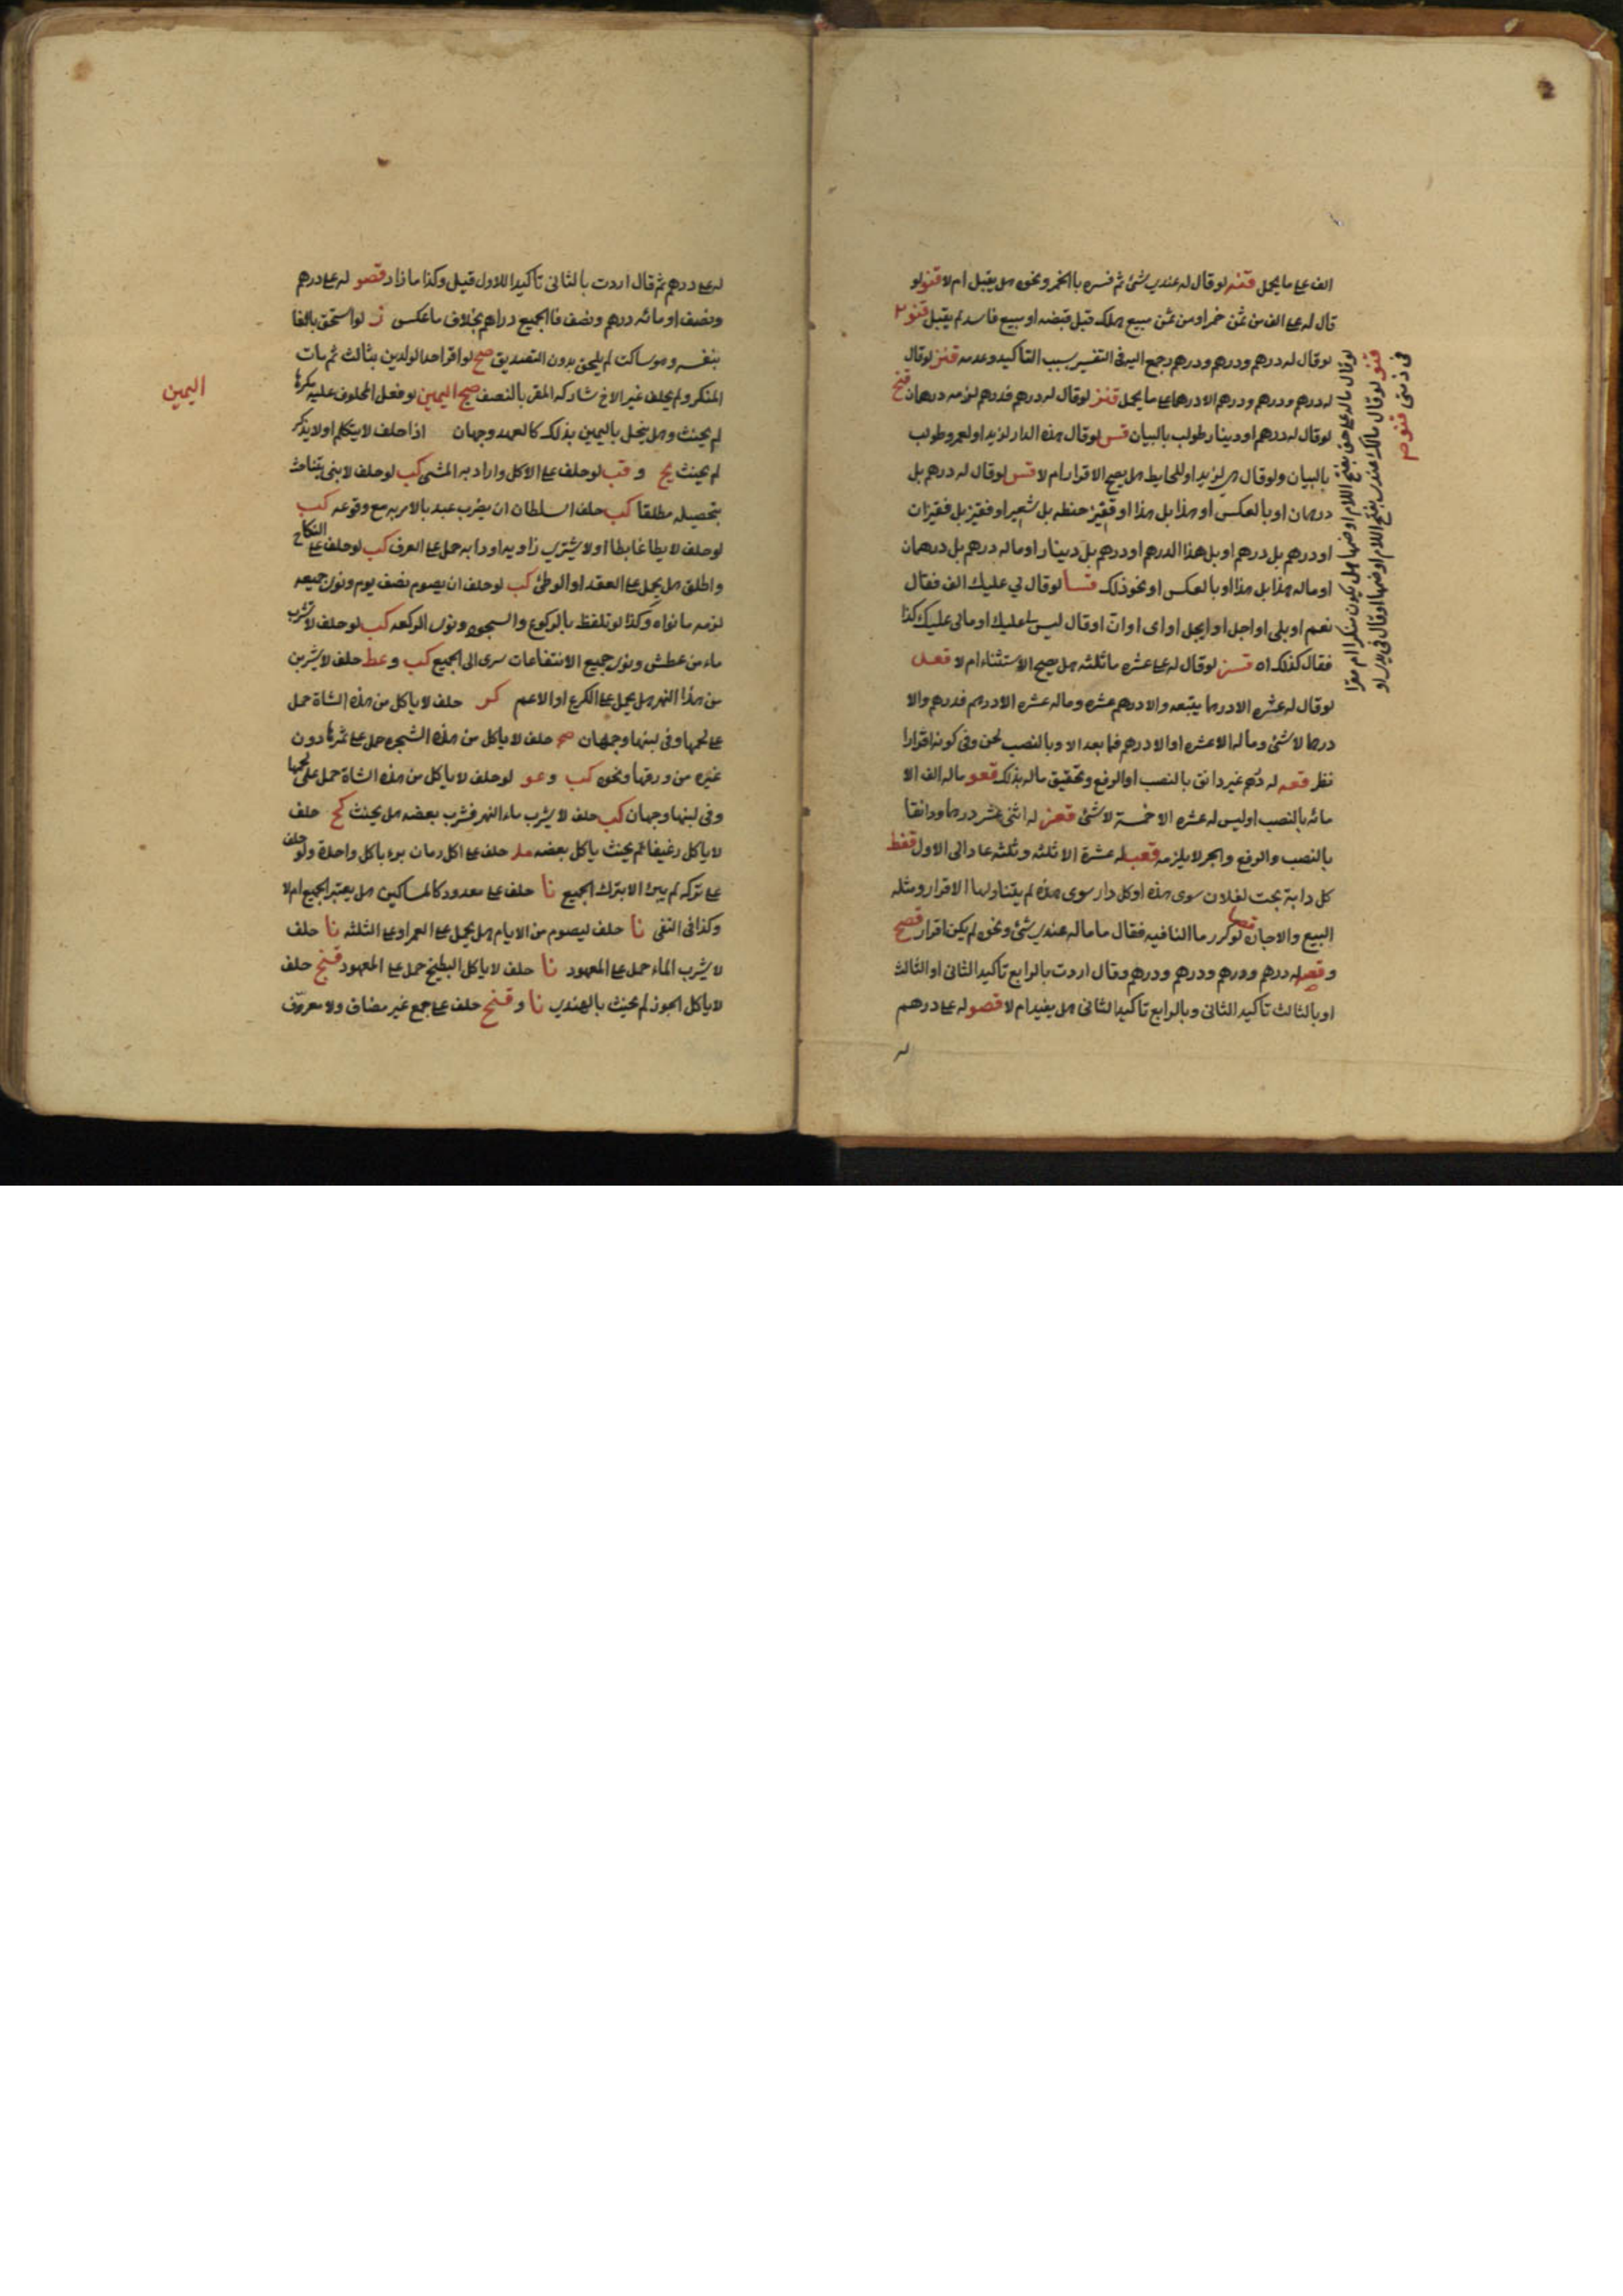 الف على ما يحمل قنه لو قال له عندي شئ ثم فسره باالخمر ونحوه هل يقبل ام لا قنو لو
قال له على الف من ثمن خمر او من ثمن مبيع هلك قبل قبضه او بيع فاسد لم يقبل قنو
لو قال له درهم ودرهم ودرهم رجع اليه فى التفسير بسبب التاكيد وعدمه قنز لو قال
له درهم ودرهم ودرهم الا درهما على ما يحمل قنز لو قال له درهم فدرهم لزمه درهمان قنح
لو قال له درهم او دينار طولب بالبيان قس لو قال هذه الدار لزيد او لعمر وطولب
بالبيان ولو قال هى لزيد او للحايط هل يصح الاقرار ام لا قس لو قال له درهم بل
درهمان او بالعكس او هذا بل هذا او قفيز حنطه بل شعير او قفيز بل قفيزان
او درهم بل درهم او بل هذا الدرهم او درهم بل دينار او ماله درهم بل درهمان
او ماله هذا بل هذا او بالعكس او نحو ذلك قسا لو قال لي عليك الف فقال
نعم او بلى او اجل او ايجل او اى او ان او قال ليس لى عليك او مالى عليك كذا
فقال كذلك اه قسز لو قال له على عشره ما ثلثه هل يصح الاستثناء ام لا قعد
لو قال له عشره الا درهما يتبعه والا درهم عشره وماله عشره الا درهم فدرهم والا
درهما لا شئ وماله الا عشره او الا درهم فما بعد الا وبالنصب لحن وفى كونه اقرارا
نظر قعه له درهم غير دانق بالنصب او الرفع وتحقيق ماله بذلك قعو ماله الف الا
مائه بالنصب او ليس له عشره الا خمسة لا شئ قعز له اثنى عشر درهما ودانقا
بالنصب والرفع والجر لا يلزمه قعب له عشرة الا ثلثه وثلثه عاد الى الاول قفط
كل دابة تحت لفلان سوى هذه او كل دار سوى هذه لم يتناولها الاقرار ومثله
البيع والاجاره لو كرر ما النافيه فقال ما ماله عندي شئ ونحوه لم يكن اقرار قصح
و قصد له درهم ودرهم ودرهم ودرهم وقال اردت بالرابع تاكيد الثانى او الثالث
او بالثالث تاكيد الثانى وبالرابع تاكيد الثانى هل يفيد ام لا قصو له على درهم
له
لو قال ماله على حق بفتح اللام او ضمها هل يكون منكرا ام مقرا
قنو لو قال مالك عندي بفتح اللام او ضمها او قال فى يدي او
فى ذمتى قنوم
له على درهم ثم قال اردت بالثانى تاكيدا للاول قيل وكذا ما زاد قصو له على درهم
ونصف او مائه درهم ونصف فاالجميع دراهم بخلاف ما عكس ز لو استحق بالغا
بنفسه وهو ساكت لم يلحق بدون التصديق صح لو اقر احد الولدين بثالث ثم مات
المنكر ولم يخلف غير الاخ شاركه المقر بالنصف صح اليمين لو فعل المحلوف عليه مكرها
لم يحنث وهل ينحل باليمين بذلك كالعهد وجهان اذا حلف لا يتكلم او لا يذكر
لم يحنث يح و قب لو حلف على الاكل واراد به المشى كب لو حلف لابنى يتناحث
بتحصيله مطلقا كب حلف السلطان ان يضرب عبده بالامر به مع وقوعه كب
لو حلف لا يطا غابطا او لا يشترى زاويه او دابه حمل على العرف كب لو حلف على النكاح
واطلق هل يحمل على العقد او الوطئ كب لو حلف ان يصوم نصف يوم ونوى جميعه
لزمه ما نواه وكذا لو تلفظ بالركوع والسجود ونوى الركعه كب لو حلف لا شرب
ماء من عطش ونوى جميع الانتفاعات سرى الى الجميع كب و عط حلف لا يشربن
من هذا النهر هل يحمل على الكرع او الاعم كر حلف لا ياكل من هذه الشاة حمل
على لحمها وفى لبنها وجهان صح حلف لا ياكل من هذه الشجره حمل على ثمرها دون
غيره من ورقها ونحوه كب و عو لو حلف لا ياكل من هذه الشاة حمل على لحمها
وفى لبنها وجهان كب حلف لا يشرب ماء النهر فشرب بعضه هل يحنث كح حلف
لا ياكل رغيفا لم يحنث ياكل بعضه ملد حلف على اكل رمان برء باكل واحدة ولو حلف
على تركه لم يبرا الا بترك الجميع نا حلف على معدود كالمساكين هل يعتبر الجميع ام لا
وكذا فى النفى نا حلف ليصوم من الايام هل يحمل على العمر او على الثلثه نا حلف
لا يشرب الماء حمل على المعهود نا حلف لا ياكل البطيخ حمل على المعهود قنح حلف
لا ياكل الجوز لم يحنث بالهندي نا و قنح حلف على جمع غير مضاف ولا معرف
اليمين